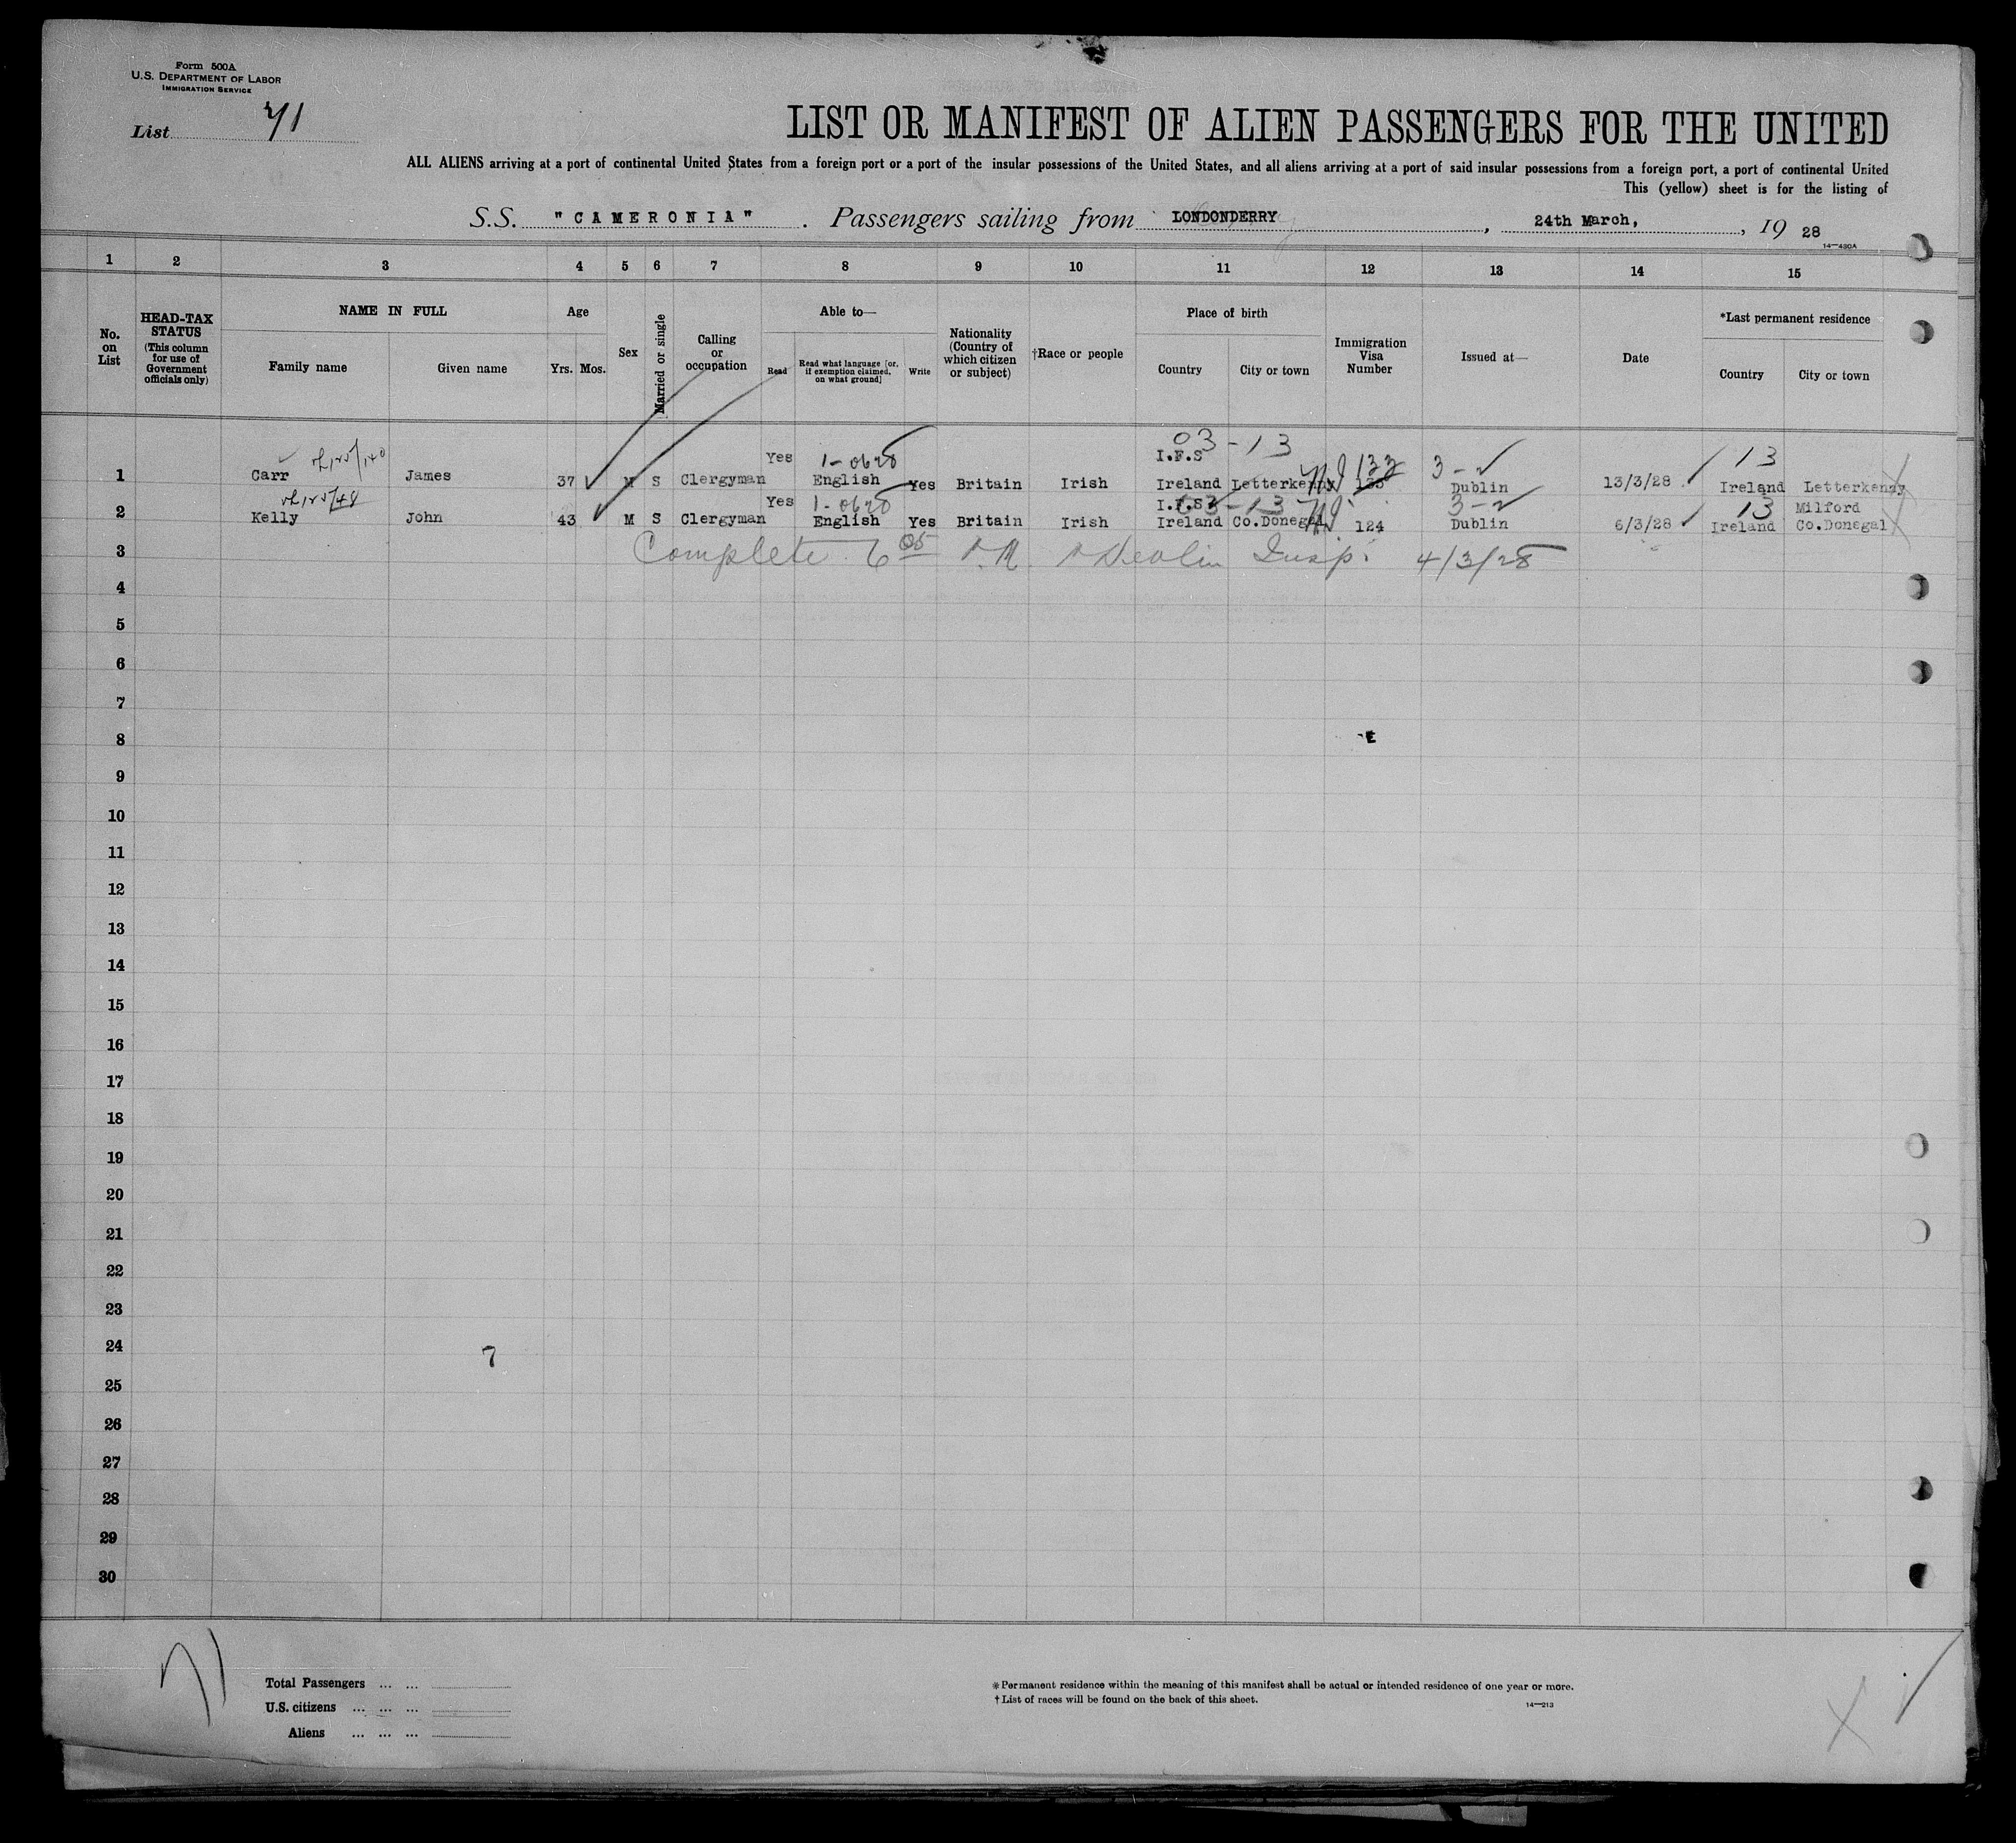 Form 500A
U.S. DEPARTMENT OF LABOR
IMMIGRATION SERVICE
List 71
LIST OR MANIFEST OF ALIEN PASSENGERS FOR THE UNITED
ALL ALIENS arriving at a port of continental United States from a foreign port or a port of the insular possessions of the United States, and all aliens arriving at a port of said insular possessions from a foreign port, a port of continental United
This (yellow) sheet is for the listing of
S.S. "CAMERONIA". Passengers sailing from LONDONDERRY, 24th March, 19 28
14—430A
1 2 3 4 5 6 7 8 9 10 11 12 13 14 15
No. on List
HEAD-TAX STATUS (This column for use of Government officials only)
NAME IN FULL
Family name Given name
Age
Yrs. Mos.
Sex
Married or single
Calling or occupation
Able to—
Read
Read what language [or, if exemption claimed, on what ground]
Write
Nationality (Country of which citizen or subject)
†Race or people
Place of birth
Country City or town
Immigration Visa Number
Issued at—
Date
*Last permanent residence
Country City or town
03-13
Yes 1-0628 I.F.S 133 3-2 13
1 Carr James 37 M S Clergyman English Yes Britain Irish Ireland Letterkenny Dublin 13/3/28 Ireland Letterkenny
Yes 1-0628 I.F.S 03-13 3-2 13 Milford
2 Kelly John 43 M S Clergyman English Yes Britain Irish Ireland Co.Donegal 124 Dublin 6/3/28 Ireland Co.Donegal
3 Complete 6 05 P.M. Devlin Insp. 4/3/28
4
5
6
7
8
9
10
11
12
13
14
15
16
17
18
19
20
21
22
23
24 7
25
26
27
28
29
30
71
Total Passengers ... ...
U.S. citizens ... ... ...
Aliens ... ... ...
*Permanent residence within the meaning of this manifest shall be actual or intended residence of one year or more.
†List of races will be found on the back of this sheet.
14—213